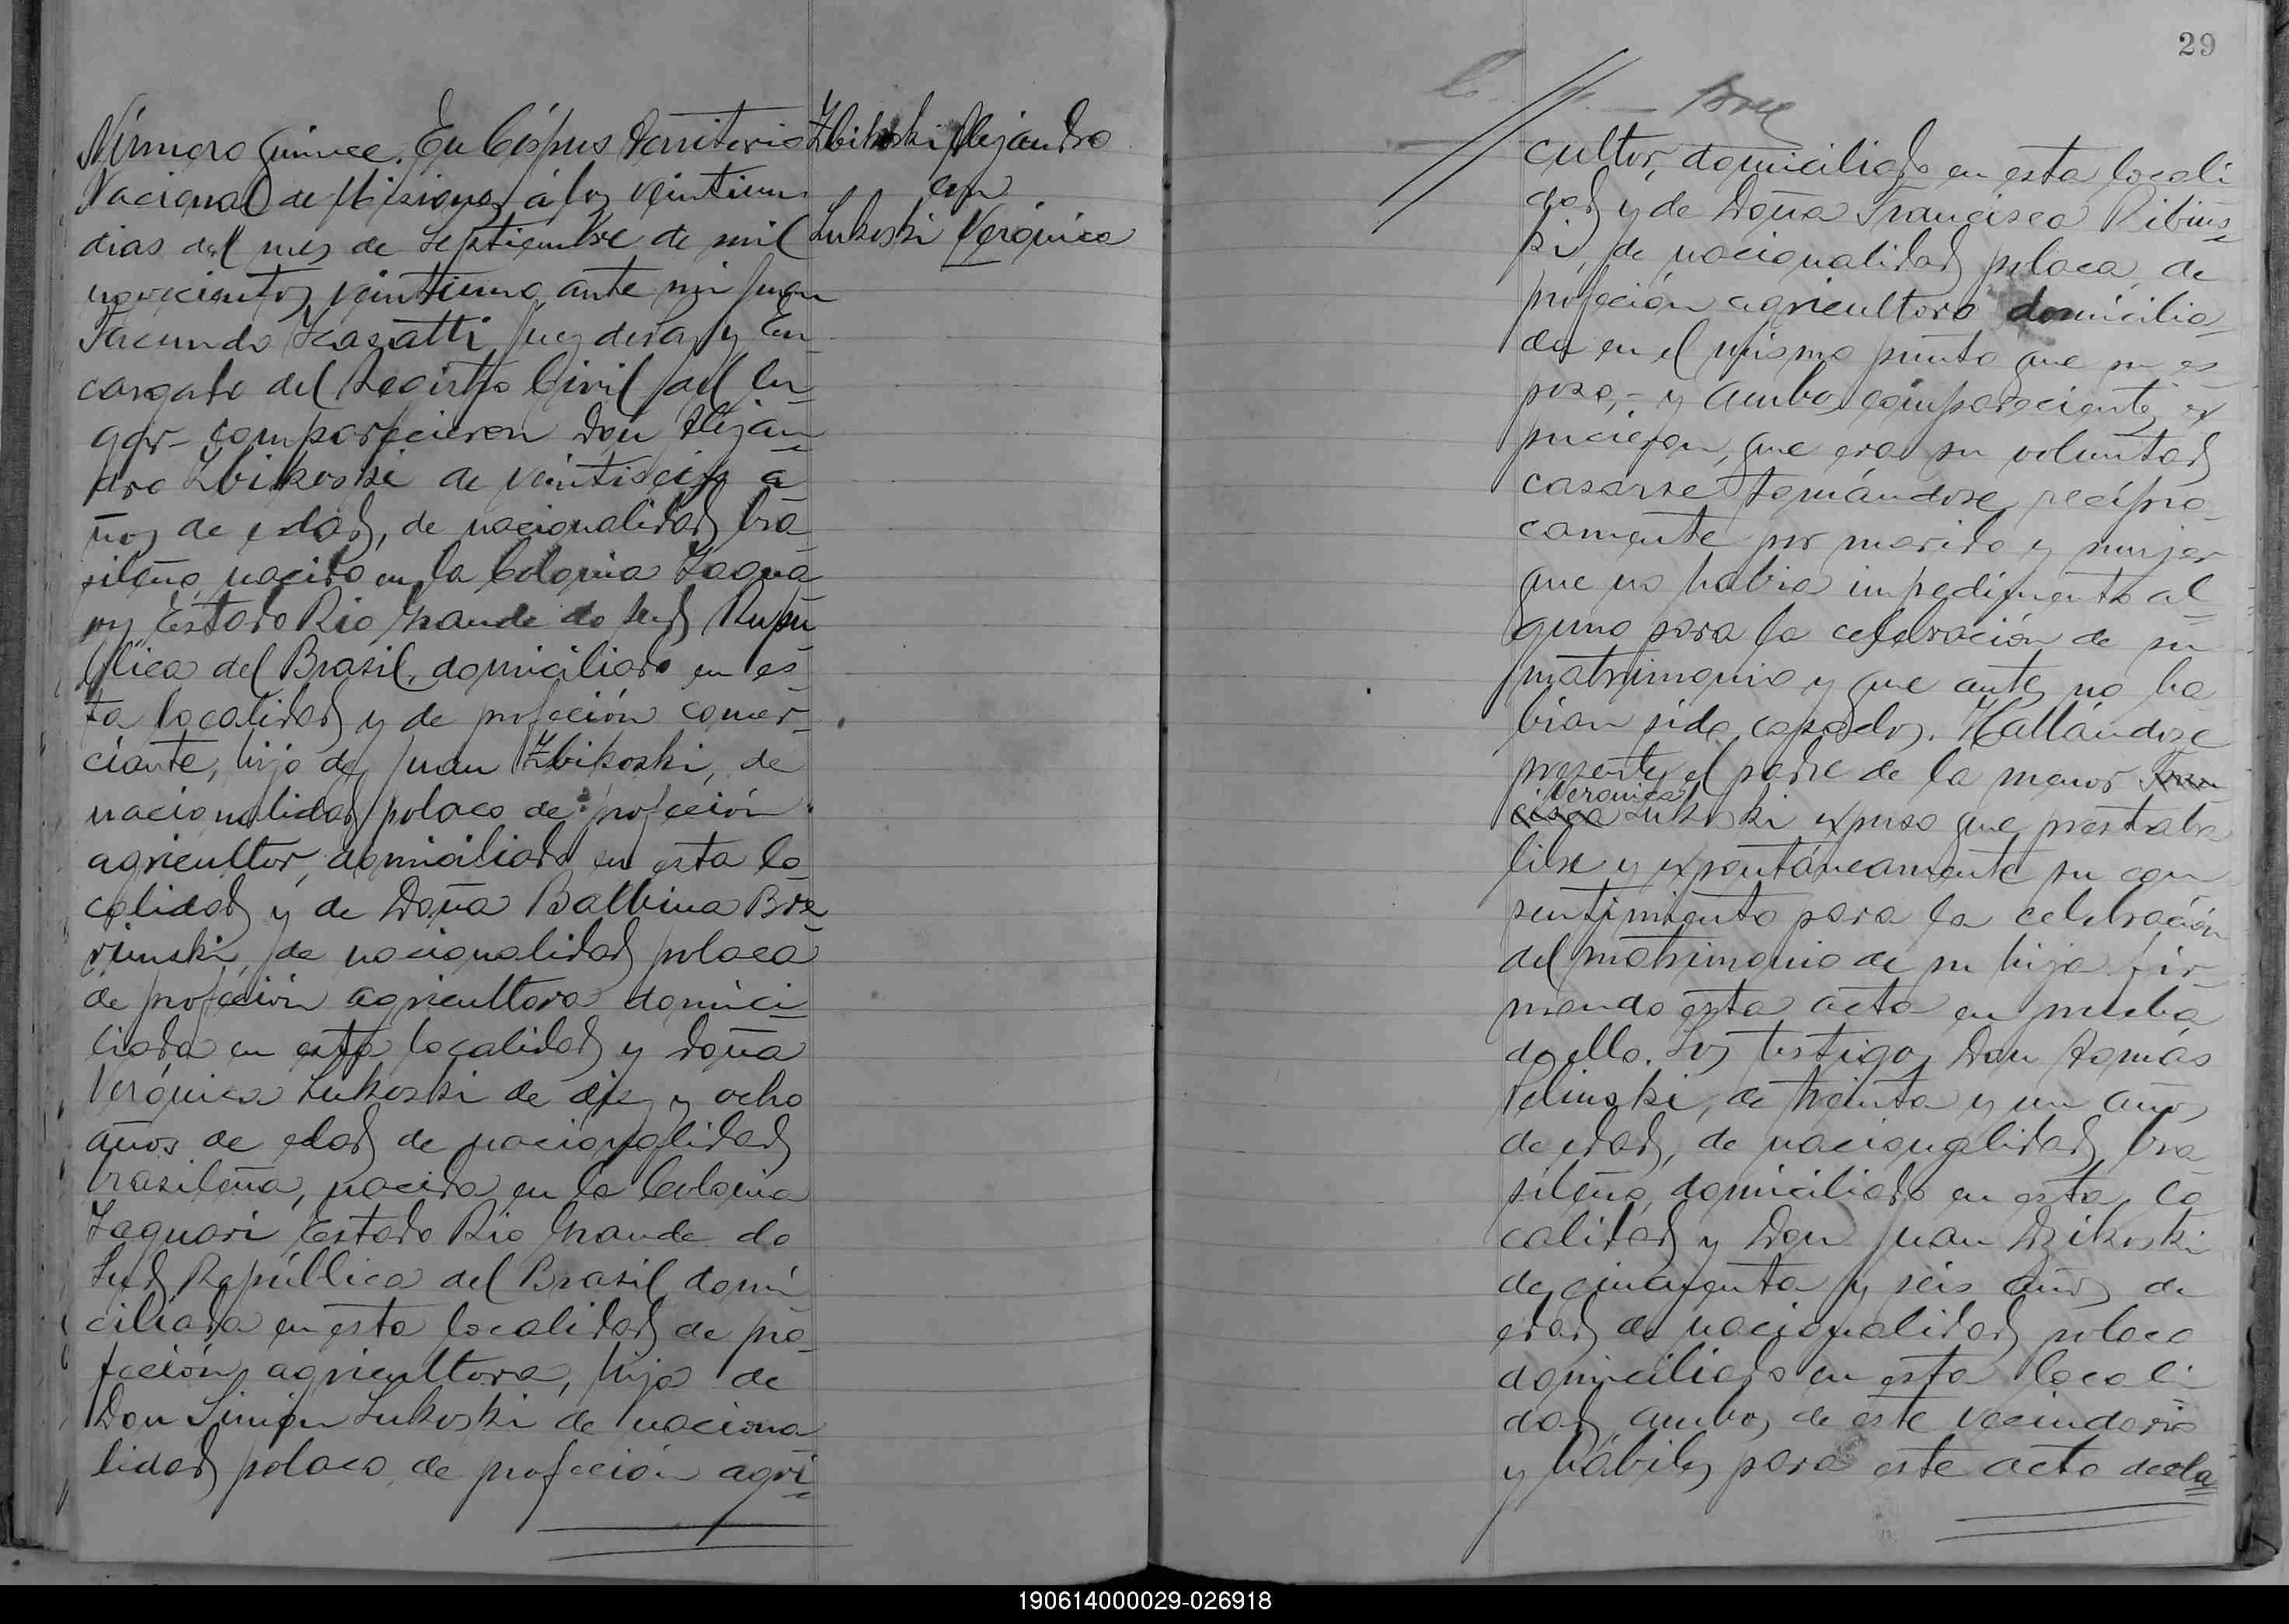 Número quince. En Córpus Territorio
Nacional de Misiones á los veintiun
dias del mes de Septiembre de mil
novecientos veintiuno, ante mi Juan
Facundo Juez de Paz y En-
cargado del Registro Civil del lu-
gar comparecieron Don Alejan-
dro Zbikoski de veintiseis a-
ños de edad, de nacionalidad bra-
sileña, nacido en la Colonia Jagua-
ry Estado Rio Grande do Sud, Repú-
blica del Brasil, domiciliado en es-
ta localidad y de profeción comer-
ciante, hijo de Juan Zbikoski, de
nacionalidad polaco de profeción
agricultor, domiciliado en esta lo-
calidad y de Doña Balbina Bre-
rinski, de nacionalidad polaca
de profeción agricultora domici-
liada en esta localidad y Doña
Verónica Lukoski de diez y ocho
años de edad de nacionalidad
brasileña, nacida en la Colonia
Jaguari Estado Rio Grande do
Sud República del Brasil domi-
ciliada en esta localidad de pro-
feción agricultora, hija de
Don Simón Lukoski de naciona-
lidad polaco, de profeción agri-
Zbikoski Alejandro
con
Lukoski Verónica
29
cultor, domiciliado en esta locali-
dad y de Doña Francisca Ribins-
ki, de nacionalidad polaca, de
profeción agricultora domicilia-
da en el mismo punto que su es-
poso,- y ambos comparecientes ex-
pusieron, que era su voluntad
casarse tomándose recípro-
camente por marido y mujer
que no habia impedimento al-
guno para la celebración de su
matrimonio y que antes no ha-
bian sido casados. Hallándose
presente el padre de la menor Fran-
cisca Verónica Lukoski expuso que prestaba
libre y expontáneamente su con-
sentimiento para la celebración
del matrimonio de su hija fir-
mando esta acta en prueba
de ello. Los testigos Don Tomás
Pelinski, de treinta y un años
de edad, de nacionalidad bra-
sileño, domiciliado en esta lo-
calidad y Don Juan Dzikoski
de cincuenta y seis años de
edad de nacionalidad polaco
domiciliado en esta locali-
dad, ambos de este vecindario
y hábiles para este acto decla-
190614000029-026918